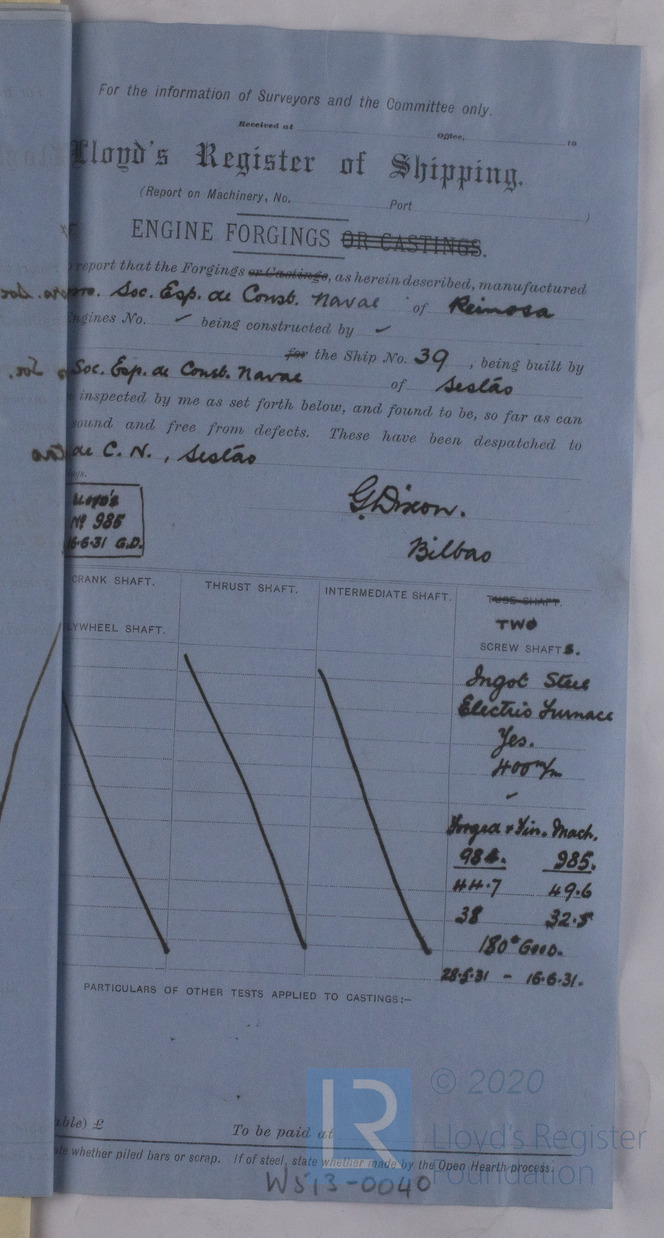 For the information of Surveyors and the Committee only.
Received at Office, 19
Lloyd's Register of Shipping.
(Report on Machinery, No. Port )
ENGINE FORGINGS OR CASTINGS.
report that the Forgings or Castings, as herein described, manufactured
Soc. Esp. de Const. Naval of Reinosa
Engines No. being constructed by
for the Ship No. 39, being built by
Soc. Esp. de Const. Naval of Sestão
inspected by me as set forth below, and found to be, so far as can
sound and free from defects. These have been despatched to
de C. N., Sestão
LLOYD'S
Nº 985
16.6.31 G.D.
G. Dixon.
Bilbao
CRANK SHAFT. THRUST SHAFT. INTERMEDIATE SHAFT. TUBE SHAFT.
TWO
FLYWHEEL SHAFT. SCREW SHAFTS.
Ingot Steel
Electric Furnace
Yes.
400 m/m
Forged & Fin. Mach.
984. 985.
44.7 49.6
38 32.5
180° Good.
28.5.31 - 16.6.31.
PARTICULARS OF OTHER TESTS APPLIED TO CASTINGS:—
able) £ To be paid at
state whether piled bars or scrap. If of steel, state whether made by the Open Hearth process.
W513-0040
© 2020
Lloyd's Register
Foundation